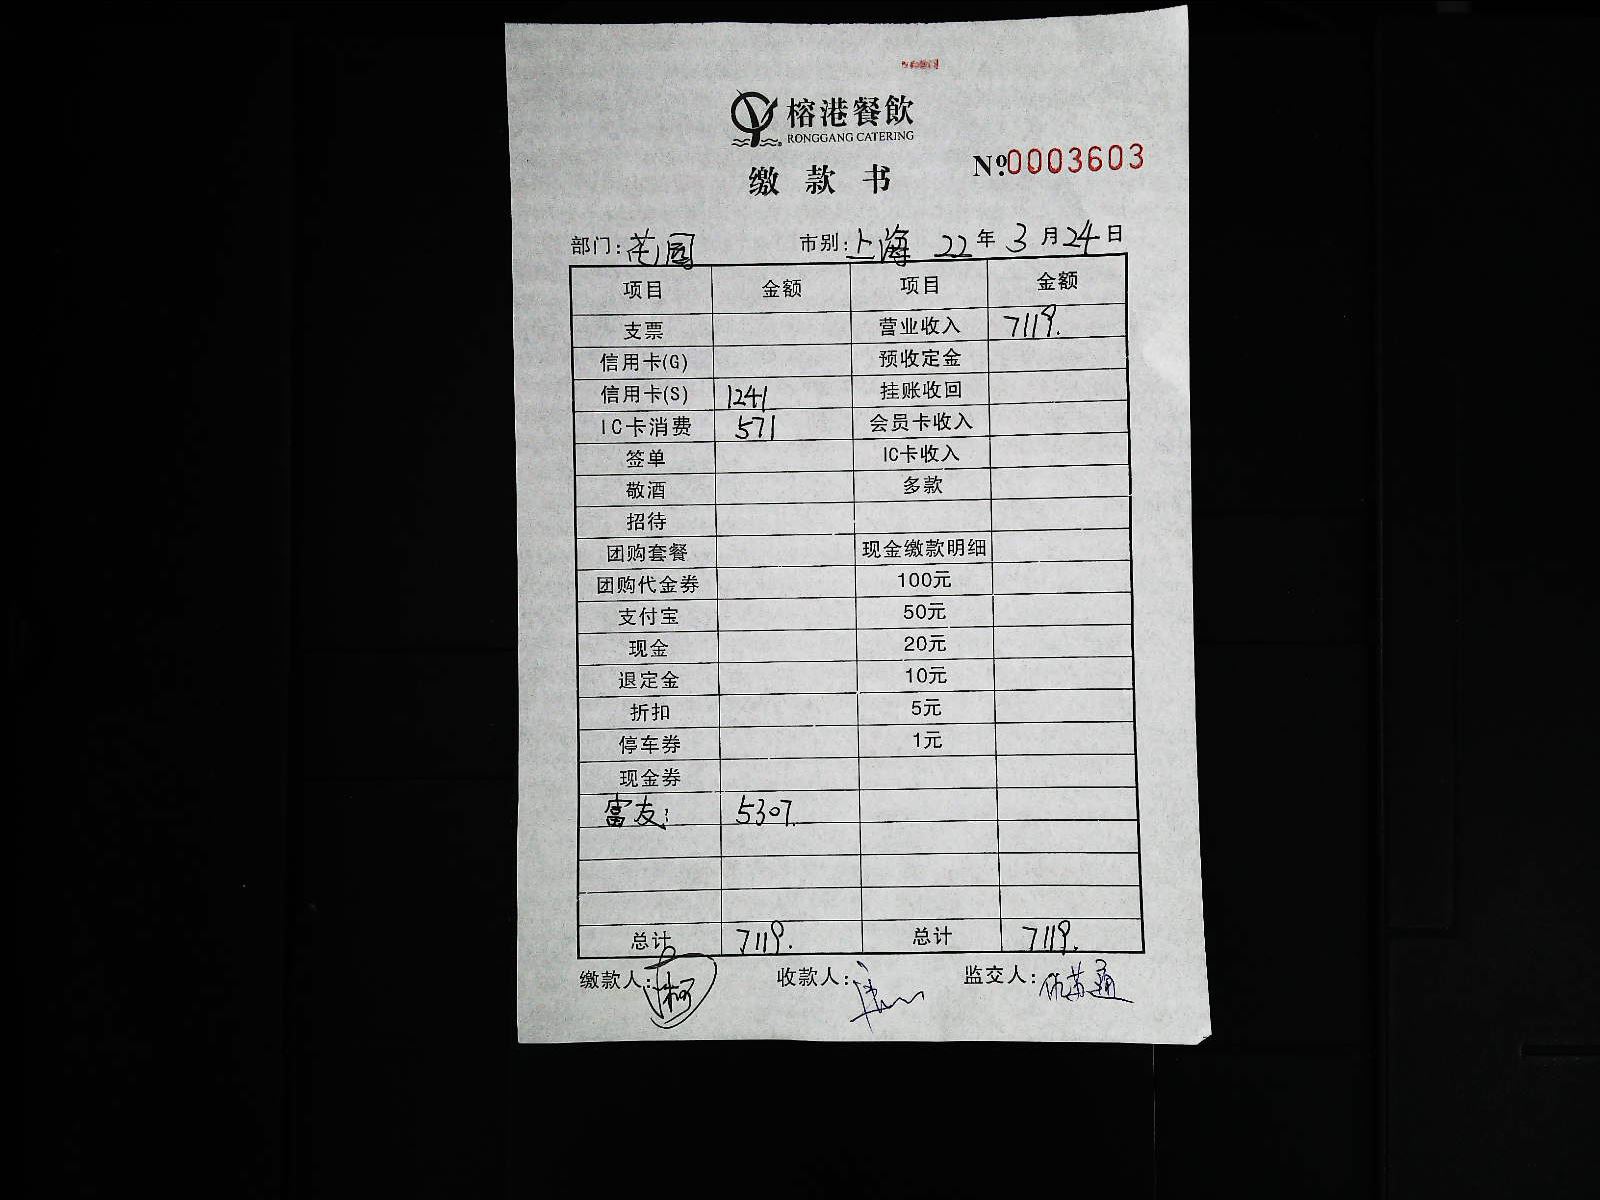 榕港餐飲
RONGGANG CATERING
缴款书
№0003603
部门: 花园 市别: 上海 22年3月24日
项目 金额 项目 金额
支票 营业收入 7119.
信用卡(G) 预收定金
信用卡(S) 1241 挂账收回
IC卡消费 571 会员卡收入
签单 IC卡收入
敬酒 多款
招待
团购套餐 现金缴款明细
团购代金券 100元
支付宝 50元
现金 20元
退定金 10元
折扣 5元
停车券 1元
现金券
富友: 5307.
总计 7119. 总计 7119.
缴款人: 收款人: 监交人: